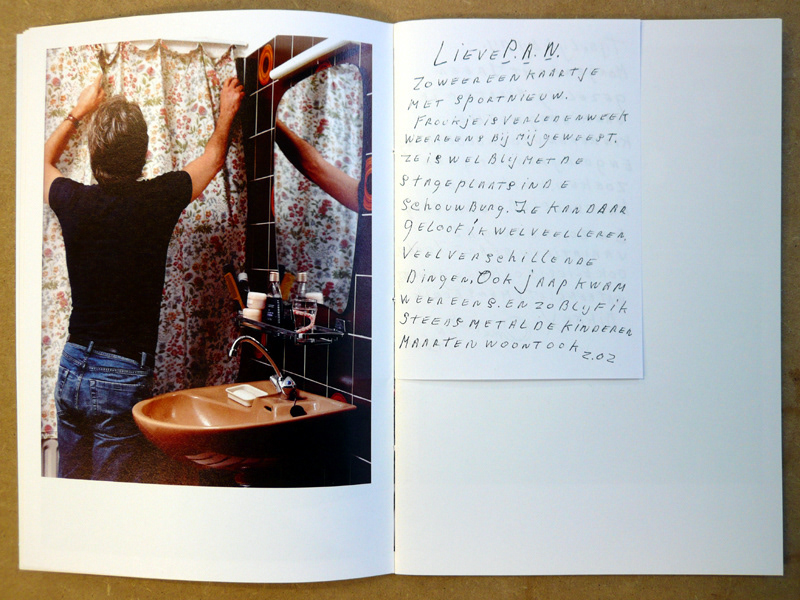 LIEVE P.A.N.
ZO WEER EEN KAARTJE
MET SPORTNIEUW.
FROUKJE IS VERLEDEN WEEK
WEER EENS BIJ MIJ GEWEEST.
ZE IS WEL BLIJ MET DE
STAGEPLAATS IN DE
SCHOUWBURG. ZE KAN DAAR
GELOOF IK WEL VEEL LEREN.
VEEL VERSCHILLENDE
DINGEN. OOK JAAP KWAM
WEER EENS. EN ZO BLIJF IK
STEEDS MET AL DE KINDEREN
MAARTEN WOONT OOK
Z.OZ